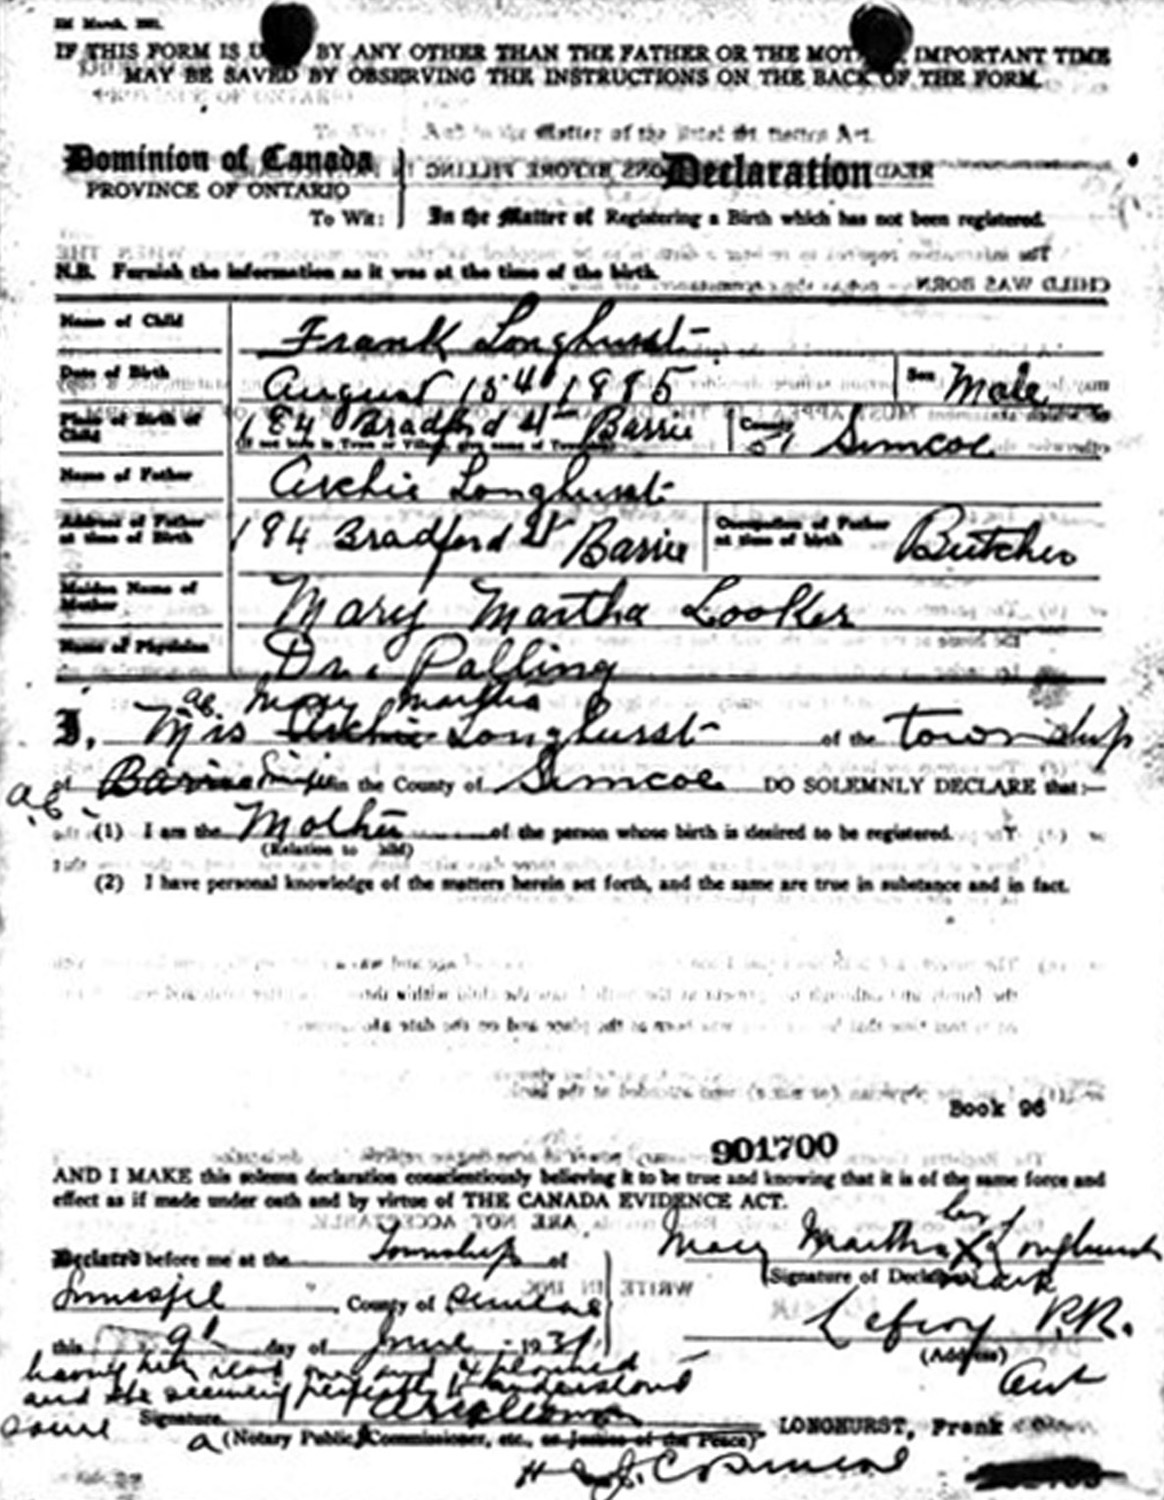 March,
IF THIS FORM IS U BY ANY OTHER THAN THE FATHER OR THE MOTHER IMPORTANT TIME
MAY BE SAVED BY OBSERVING THE INSTRUCTIONS ON THE BACK OF THE FORM.
Matter of the Act.
Dominion of Canada Declaration
PROVINCE OF ONTARIO
To Wit: In the Matter of Registering a Birth which has not been registered.
N.B. Furnish the information as it was at the time of the birth.
Name of Child Frank Longhurst
Date of Birth August 15th 1885 Sex Male
Place of Birth of Child 184 Bradford St Barrie County of Simcoe
(If not born in Town or Village, give name of Township)
Name of Father Archie Longhurst
Address of Father at time of Birth 184 Bradford St Barrie Occupation of Father at time of birth Butcher
Maiden Name of Mother Mary Martha Looker
Name of Physician Dr. Palling
Mary Martha
I, Mrs Archie Longhurst of the township
of Barrie in the County of Simcoe DO SOLEMNLY DECLARE that:—
(1) I am the Mother of the person whose birth is desired to be registered.
(Relation to him)
(2) I have personal knowledge of the matters herein set forth, and the same are true in substance and in fact.
Book 96
901700
AND I MAKE this solemn declaration conscientiously believing it to be true and knowing that it is of the same force and
effect as if made under oath and by virtue of THE CANADA EVIDENCE ACT.
her
Declared before me at the Township of Mary Martha X Longhurst
(Signature of Declarant) mark
Innisfil County of Simcoe
Lefroy R.R.
this 9th day of June 1931 (Address)
having been read over and explained Ont
and she seeming perfectly to understand
same Signature
LONGHURST, Frank
a (Notary Public, Commissioner, etc., or Justice of the Peace)